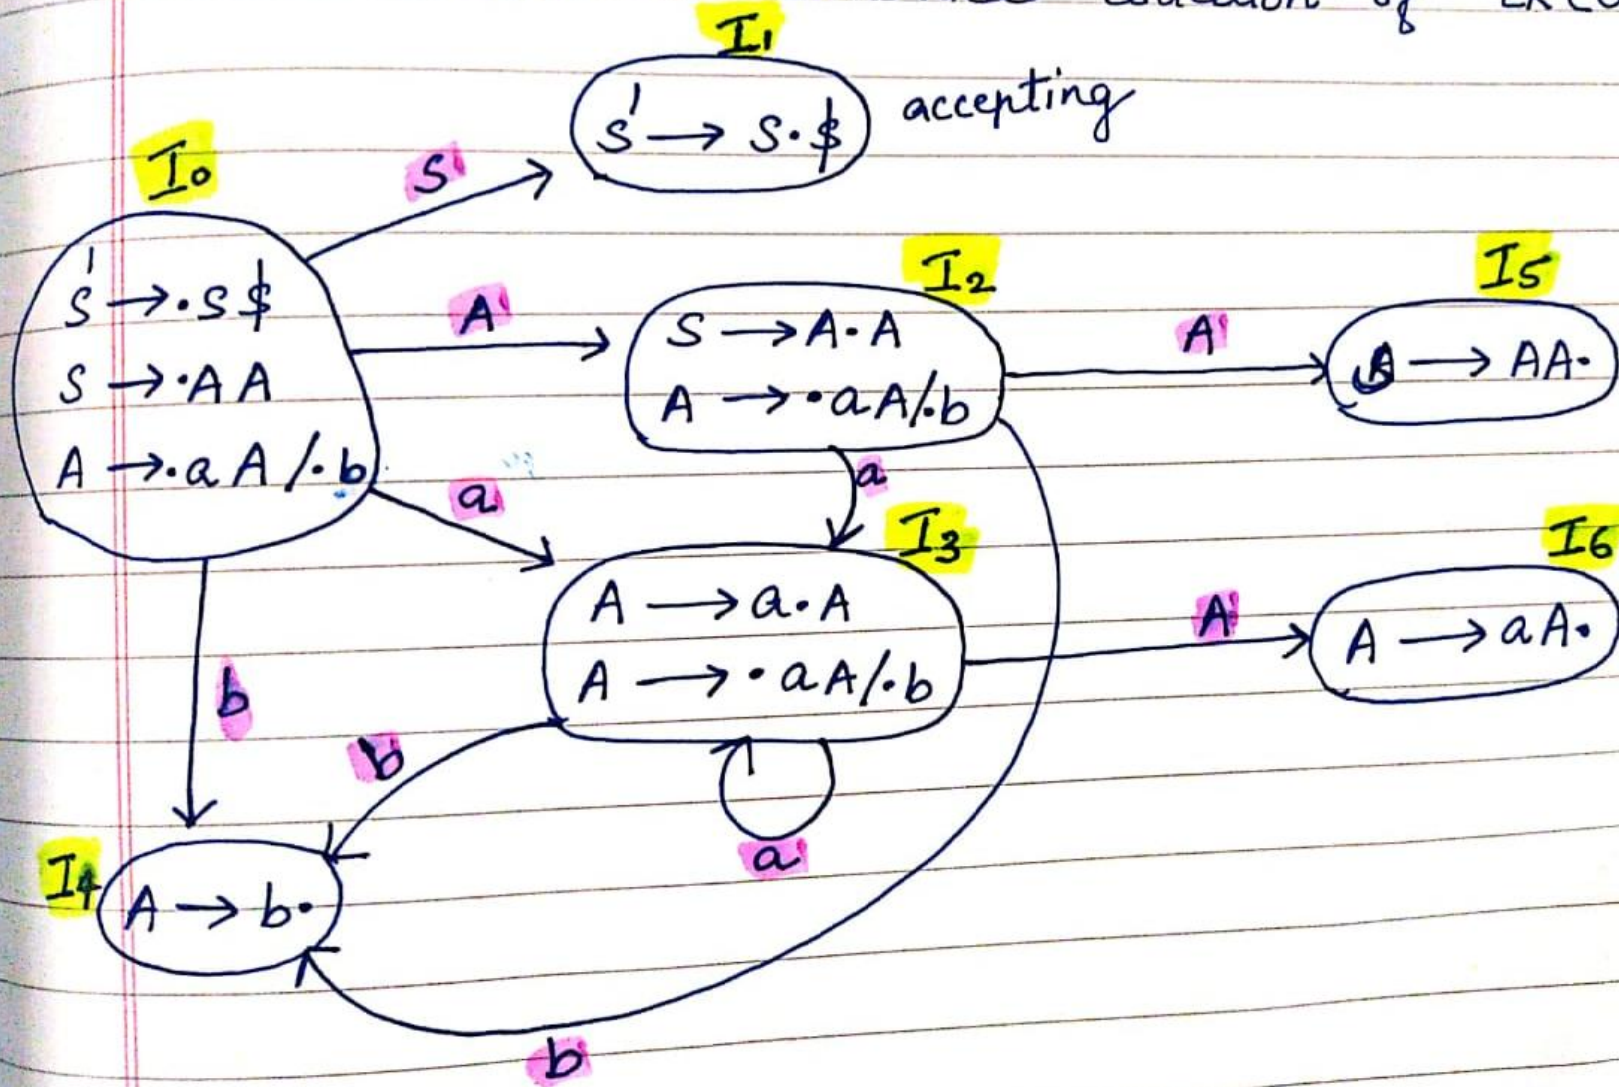 of
I1
S' → S·$ accepting
I0
S
S' → ·S$
S → ·AA
A → ·aA/·b
A
I2
S → A·A
A → ·aA/·b
A
I5
→ AA·
a
a
I3
A → a·A
A → ·aA/·b
A
I6
A → aA·
b
b
a
I4
A → b·
b